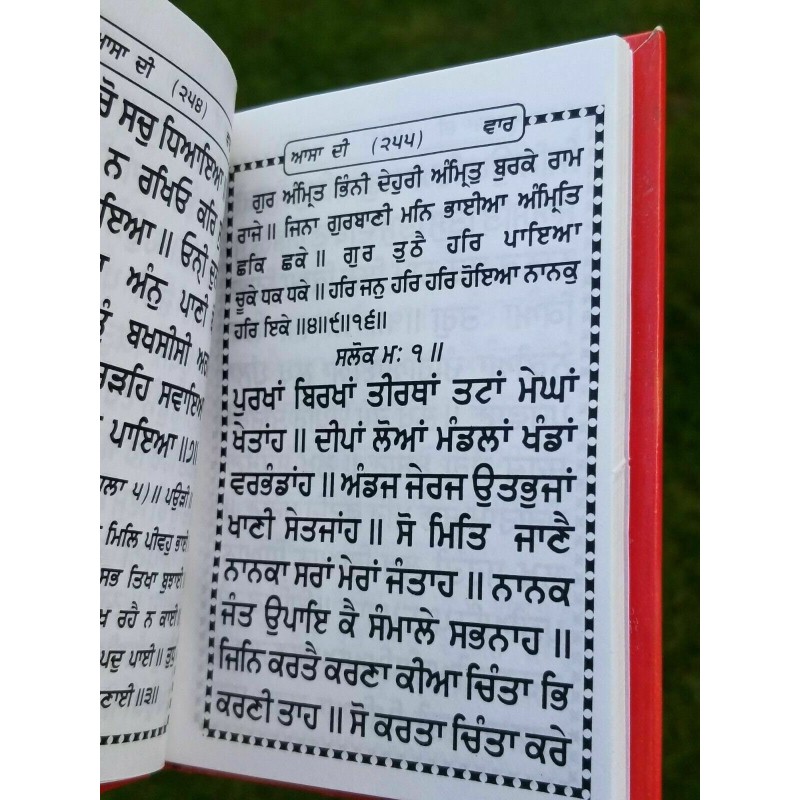 ਆਸਾ ਦੀ (੨੫੪)
ਸਚੁ ਧਿਆਇਆ
ਨ ਰਖਿਓ ਕਰਿ
ਅੰਨੁ ਪਾਣੀ
ਬਖਸੀਸੀ
ਸਵਾਇਆ
ਪਾਇਆ ॥੭॥
੫)॥ ਪਉੜੀ॥
ਮਿਲਿ ਪੀਵਹੁ ਭਾਈ
ਸਭ ਤਿਖਾ ਬੁਝਾਈ
ਰਹੈ ਨ ਕਾਈ
ਪਦੁ ਪਾਈ॥
ਆਸਾ ਦੀ (੨੫੫) ਵਾਰ
ਗੁਰ ਅੰਮ੍ਰਿਤ ਭਿੰਨੀ ਦੇਹੁਰੀ ਅੰਮ੍ਰਿਤੁ ਬੁਰਕੇ ਰਾਮ
ਰਾਜੇ॥ ਜਿਨਾ ਗੁਰਬਾਣੀ ਮਨਿ ਭਾਈਆ ਅੰਮ੍ਰਿਤਿ
ਛਕਿ ਛਕੇ॥ ਗੁਰ ਤੁਠੈ ਹਰਿ ਪਾਇਆ
ਚੂਕੇ ਧਕ ਧਕੇ॥ ਹਰਿ ਜਨੁ ਹਰਿ ਹਰਿ ਹੋਇਆ ਨਾਨਕੁ
ਹਰਿ ਇਕੇ॥੪॥੯॥੧੬॥
ਸਲੋਕ ਮਃ ੧॥
ਪੁਰਖਾਂ ਬਿਰਖਾਂ ਤੀਰਥਾਂ ਤਟਾਂ ਮੇਘਾਂ
ਖੇਤਾਂਹ॥ ਦੀਪਾਂ ਲੋਆਂ ਮੰਡਲਾਂ ਖੰਡਾਂ
ਵਰਭੰਡਾਂਹ॥ ਅੰਡਜ ਜੇਰਜ ਉਤਭੁਜਾਂ
ਖਾਣੀ ਸੇਤਜਾਂਹ॥ ਸੋ ਮਿਤਿ ਜਾਣੈ
ਨਾਨਕਾ ਸਰਾਂ ਮੇਰਾਂ ਜੰਤਾਹ॥ ਨਾਨਕ
ਜੰਤ ਉਪਾਇ ਕੈ ਸੰਮਾਲੇ ਸਭਨਾਹ॥
ਜਿਨਿ ਕਰਤੈ ਕਰਣਾ ਕੀਆ ਚਿੰਤਾ ਭਿ
ਕਰਣੀ ਤਾਹ॥ ਸੋ ਕਰਤਾ ਚਿੰਤਾ ਕਰੇ